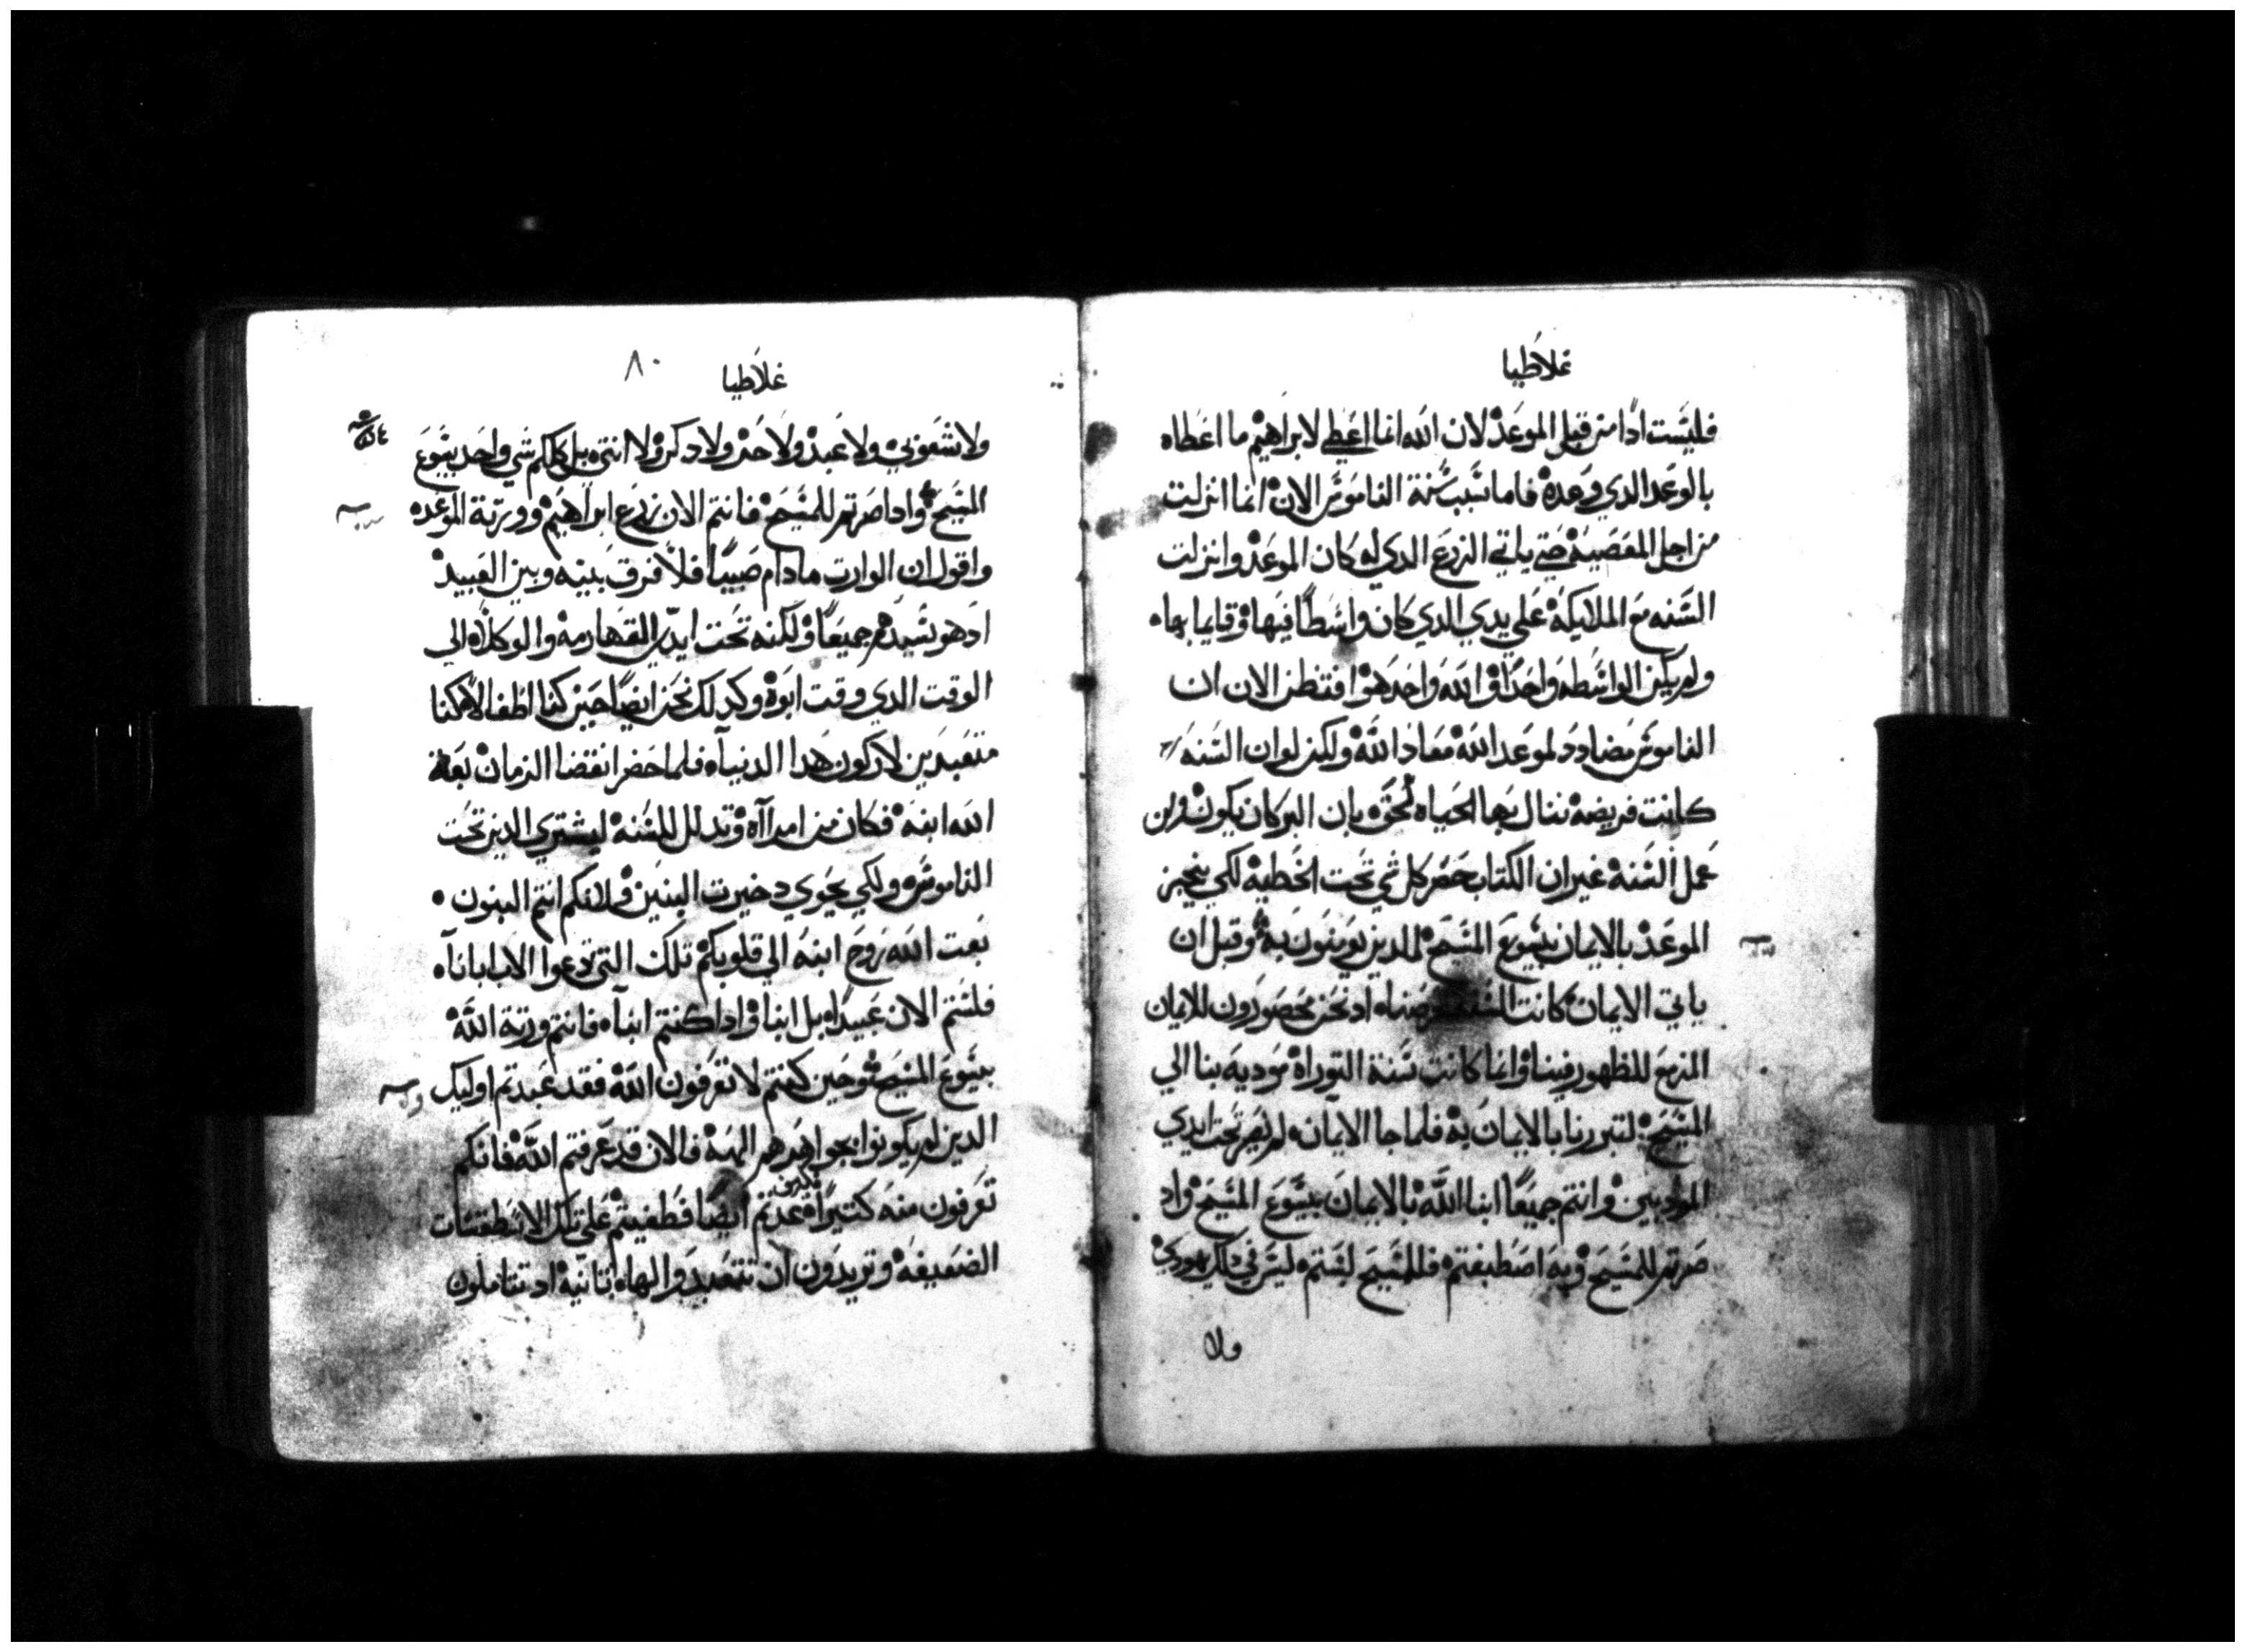 غلاطيا
فليست ادًا من قبل الموعد لان الله انما اعطى لابراهيم ما اعطاه
بالوعد الدي وعده فاما سبب سنة الناموس الان انما انزلت
من اجل المعصيه حتي ياتي الزرع الدي له كان الموعد وانزلت
السنه مع الملايكة علي يدي الدي كان واسطًا فيها وقايما بها
ولم يكن الواسطه واحدًا والله واحد هو افتظن الان ان
الناموس مضادد لموعد الله معاد الله ولكن لو ان السنه
كانت فريضه ننال بها الحياه لحق بان البر كان يكون من
عمل السنة غير ان الكتاب حصر كل شي تحت الخطية لكي ينجيز
الموعد بالايمان بيسوع المسيح للدين يومنون به وقبل ان
ياتي الايمان كانت السنه اد نحن محصورون للايمان
المزمع للظهور فينا وانما كانت سنة التوراة موديه بنا الي
المسيح لنتبررنا بالايمان به فلما جا الايمان لم نصر تحت ايدي
المودبين وانتم جميعًا ابنا الله بالايمان بيسوع المسيح واد
صرتم للمسيح وبه اصطبغتم فللمسيح لبستم ليس في دلك يهودي
ولا
غلاطيا
٨٠
ولا شعوبي ولا عبد ولا حر ولا دكر ولا انتي بل كلكم شي واحد بيسوع
المسيح وادا صرتم للمسيح فانتم الان زرع ابراهيم وورتة الموعده
واقول ان الوارت ما دام صبيًا فلا فرق بينه وبين العبيد
اد هو سيدهم جميعًا ولكنه تحت ايدي القهارمة والوكلاء الي
الوقت الدي وقت ابوه وكدلك نحن ايضًا حين كنا اطفالًا كنا
متعبدين لاركون هدا الدنيا فلما حضر انقضا الزمان بعت
الله ابنه فكان من امراآه وتدلل للسنه ليشتري الدين تحت
الناموس ولكي يحوي دخيرت البنين ولانكم انتم البنون
بعت الله روح ابنه الي قلوبكم تلك التي تدعوا الاب ابانا
فلستم الان عبيدًا بل ابنا وادا كنتم ابنا فانتم ورتة الله
بيسوع المسيح وحين كنتم لا تعرفون الله فقد عبدتم اوليك
الدين لم يكونوا بجواهرهم الهة فالان قد عرفتم الله فانكم
تعرفون منه كتيرًا عدتم ايضًا فطغيتم علي تلك الاسطقسات
الضعيفه وتريدون ان تتعبدوا لها تانية اد تتاملون